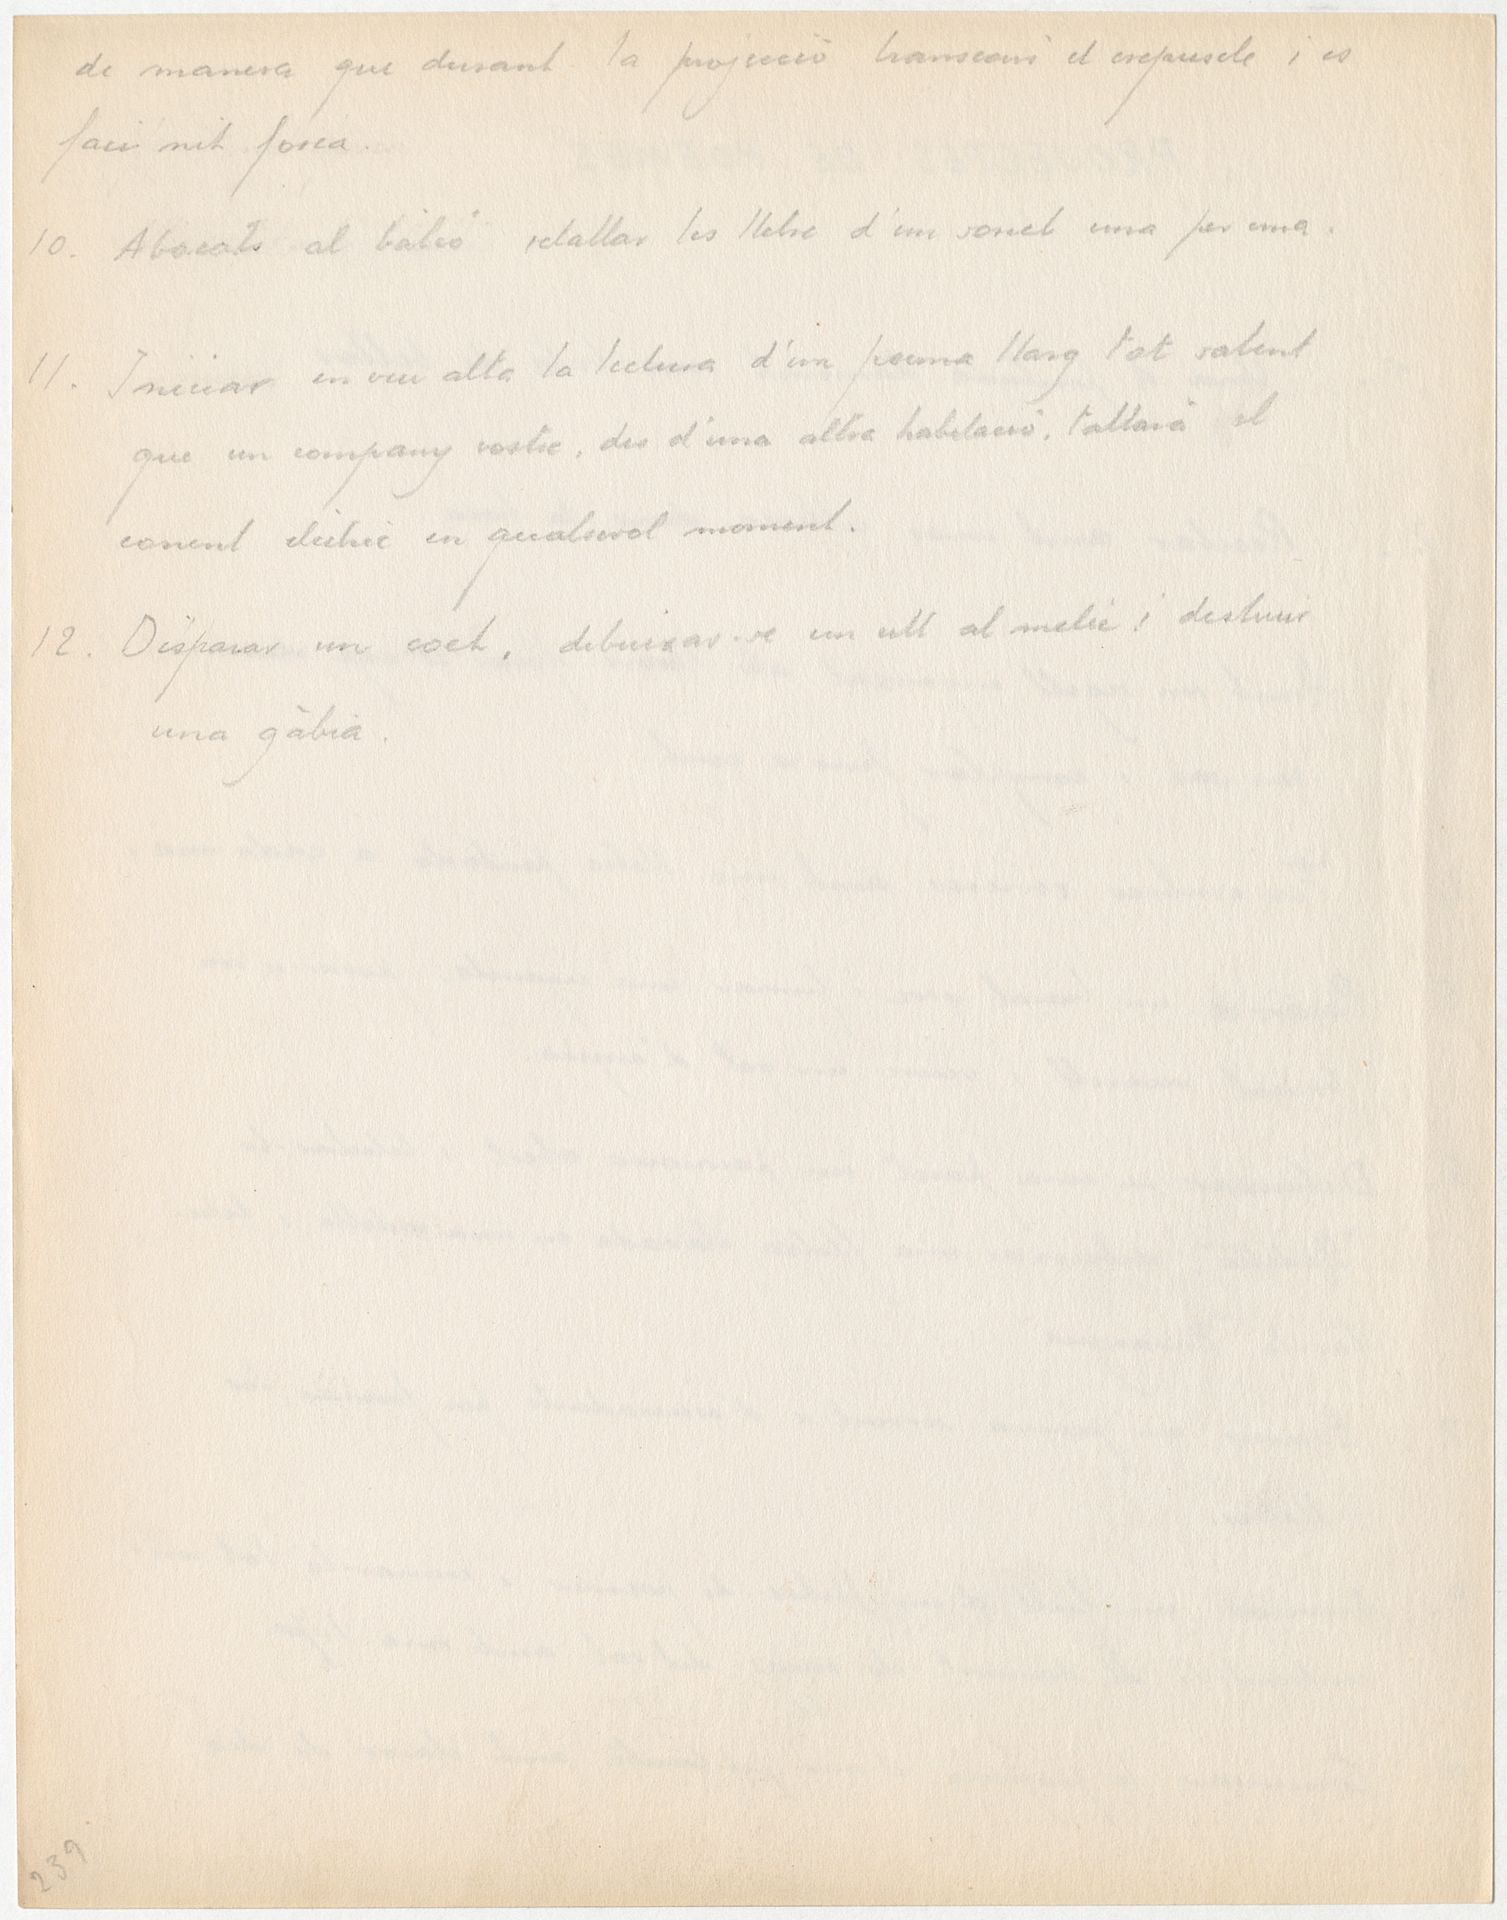 de manera que durant la projecció transcorri el crepuscle i es
faci nit fosca.
10. Abocats al balcó retallar les lletre d'un sonet una per una.
11. Iniciar en veu alta la lectura d'un poema llarg tot sabent
que un company vostre, des d'una altra habitació, tallarà el
corrent elèctric en qualsevol moment.
12. Disparar un coet, dibuixar-se un ull al melic i destruir
una gàbia.
239